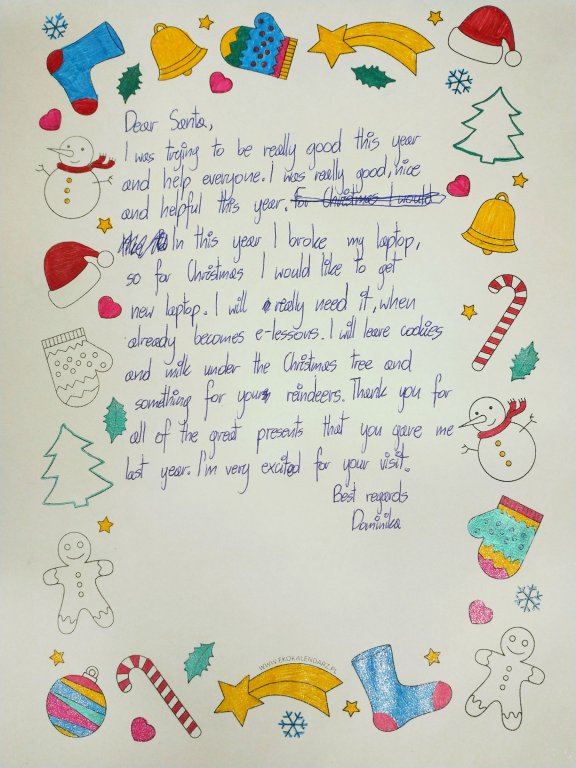 Dear Santa,
I was trying to be really good this year
and help everyone. I was really good, nice
and helpful this year. For Christmas I would
In this year I broke my laptop,
so for Christmas I would like to get
new laptop. I will really need it, when
already becomes e-lessons. I will leave cookies
and milk under the Christmas tree and
something for your reindeers. Thank you for
all of the great presents that you gave me
last year. I'm very excited for your visit.
Best regards
Dominika
WWW.EKOKALENDARZ.PL